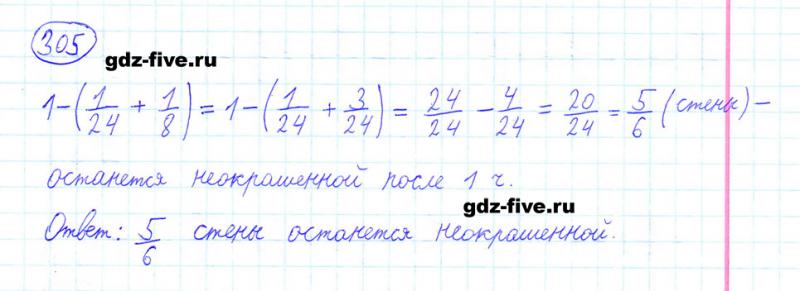 305
gdz-five.ru
1-(1/24 + 1/8) = 1-(1/24 + 3/24) = 24/24 - 4/24 = 20/24 = 5/6 (стены) -
останется неокрашенной после 1 ч.
gdz-five.ru
Ответ: 5/6 стены останется неокрашенной.